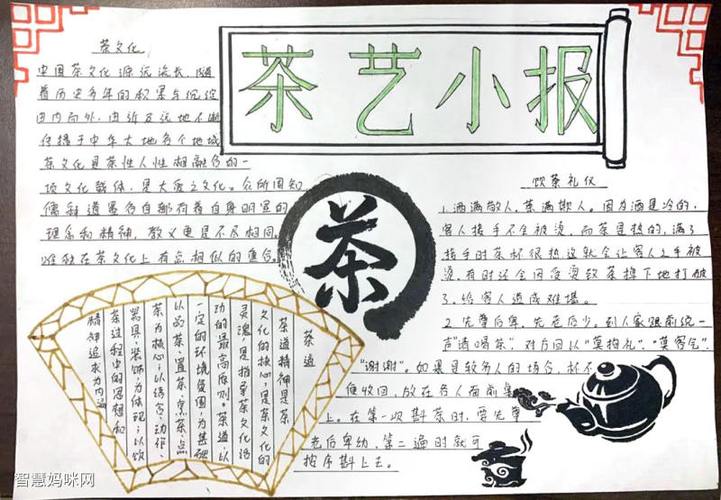 茶艺小报
茶文化
中国茶文化源远流长,随
着历史多年的积累与沉淀
由内而外,由近及远地不断
传播于中华大地各个地域
茶文化是茶性人性相融合的一
项文化载体,是大爱之文化。众所周知
儒释道墨各自都有着自身明宗的
理念和精神,教义更是不尽相同,
唯独在茶文化上有点相似的集合。
茶
饮茶礼仪
1.酒满敬人,茶满欺人。因为酒是冷的,
客人接手不会被烫,而茶是热的,满了
接手时茶杯很热这就会让客人之手被
烫,有时还会因受烫致茶掉下地打破
了,给客人造成难堪。
2.先尊后卑,先老后少。到人家跟前说一
声"请喝茶",对方回以"莫拘礼"、"莫客气"、
"谢谢"。如果是较多人的场合,杯不
便收回,放在各人面前
上。在第一次斟茶时,要先尊
老后卑幼,第二遍时就可
按序斟上去。
茶道
茶道精神是茶
文化的核心,是茶文化的
灵魂,是指导茶文化活
动的最高原则。茶道以
一定的环境氛围为基础
以品茶、置茶、烹茶、点
茶为核心,以语言、动作、
器具、装饰为体现,以饮
茶过程中的思想和
精神追求为内涵
智慧妈咪网